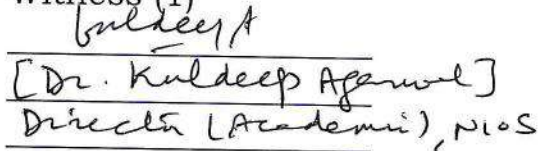 Witness (1)
Kuldeep A
[Dr. Kuldeep Agarwal]
Director (Academic), NIOS